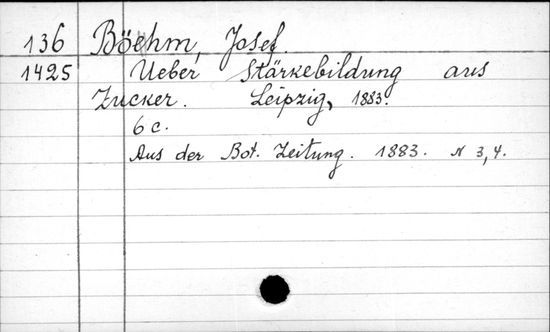 136 Böehm, Josef.
1425 Ueber Stärkebildung aus
Zucker. Leipzig, 1883.
6 c.
Aus der Bot. Zeitung. 1883. N 3,4.